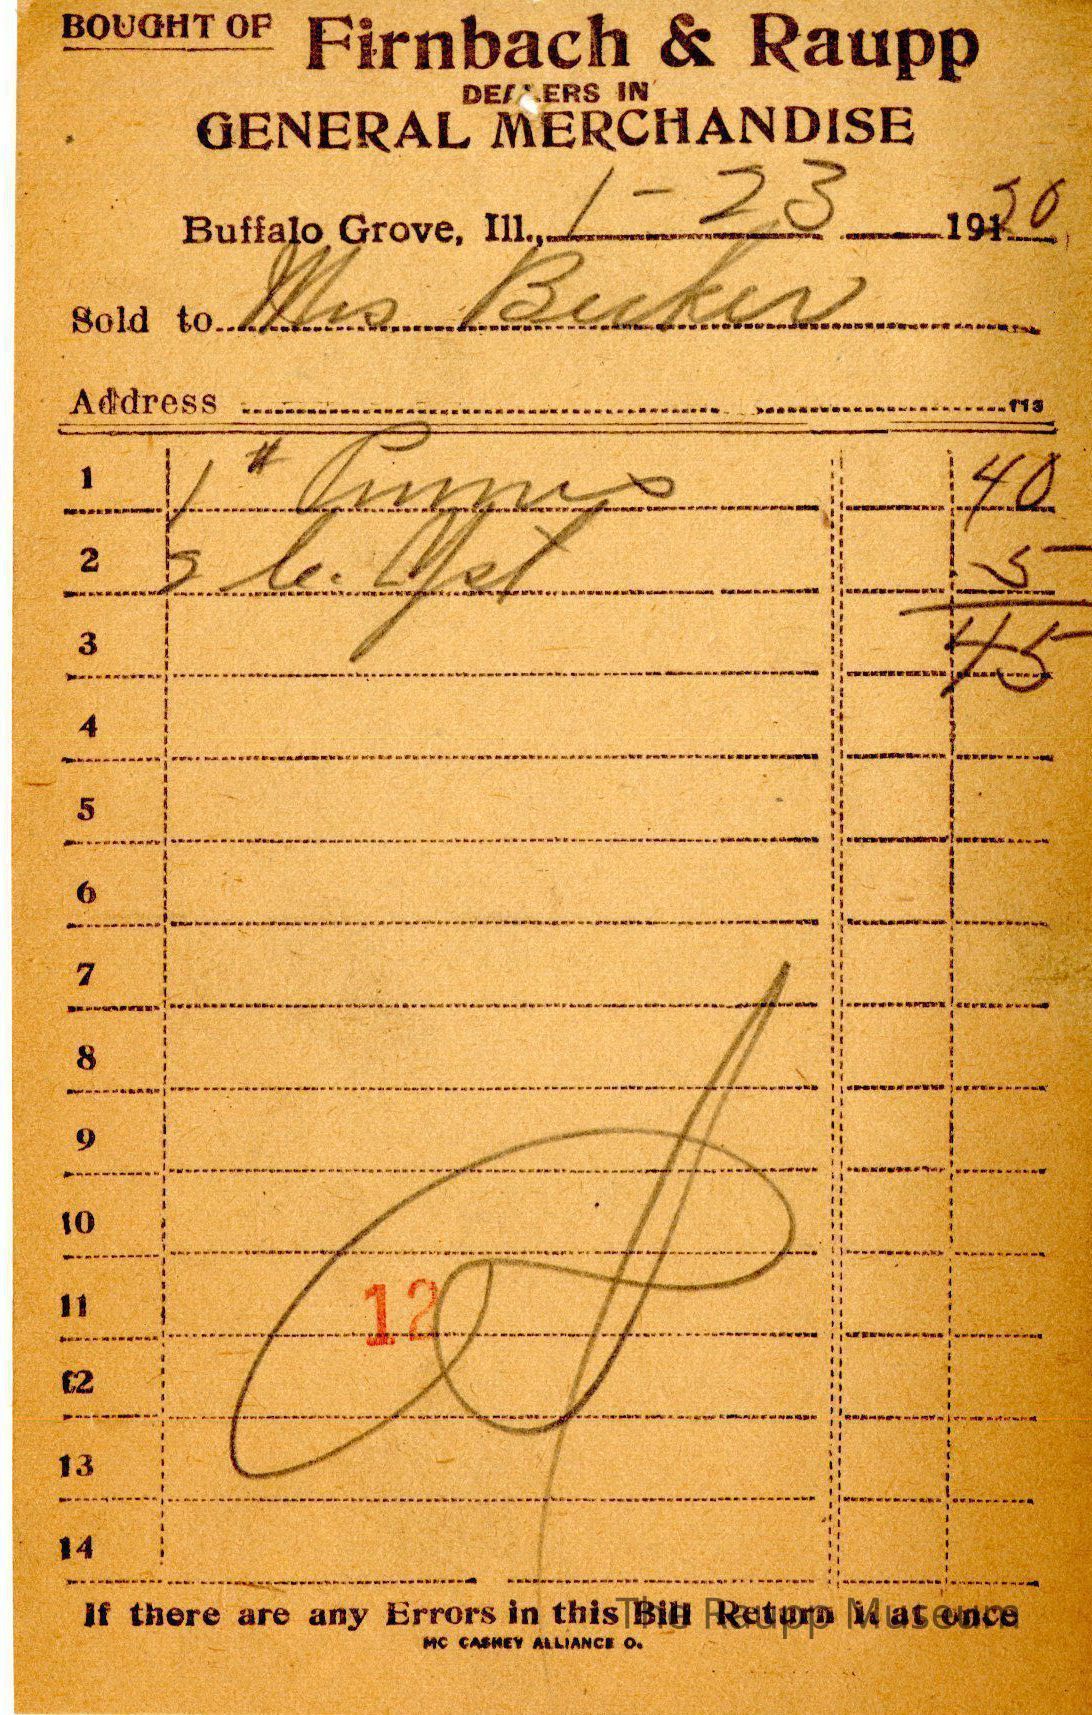 BOUGHT OF Firnbach & Raupp
DEALERS IN
GENERAL MERCHANDISE
Buffalo Grove, Ill., 1-23 1920
Sold to Mrs Becker
Address
113
1 1# Prunes 40
2 2 c. Yst 5
3 45
4
5
6
7
8
9
10
11
12
12
13
14
If there are any Errors in this Bill Return it at once
The Raupp Museum
MC CASKEY ALLIANCE O.